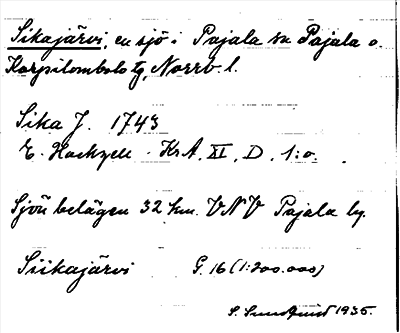 Sikajärvi, en sjö i Pajala sn Pajala o.
Korpilombolo tg, Norrb. l.
Sika J. 1743
E. Hackzell. Kr A, XI, D, 1:o.
Sjön belägen 32 km. VNV Pajala by.
Siikajärvi G. 16 (1:200.000)
S. Sundquist 1935.